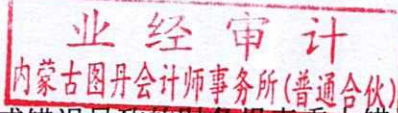 业经审计
内蒙古图丹会计师事务所(普通合伙)